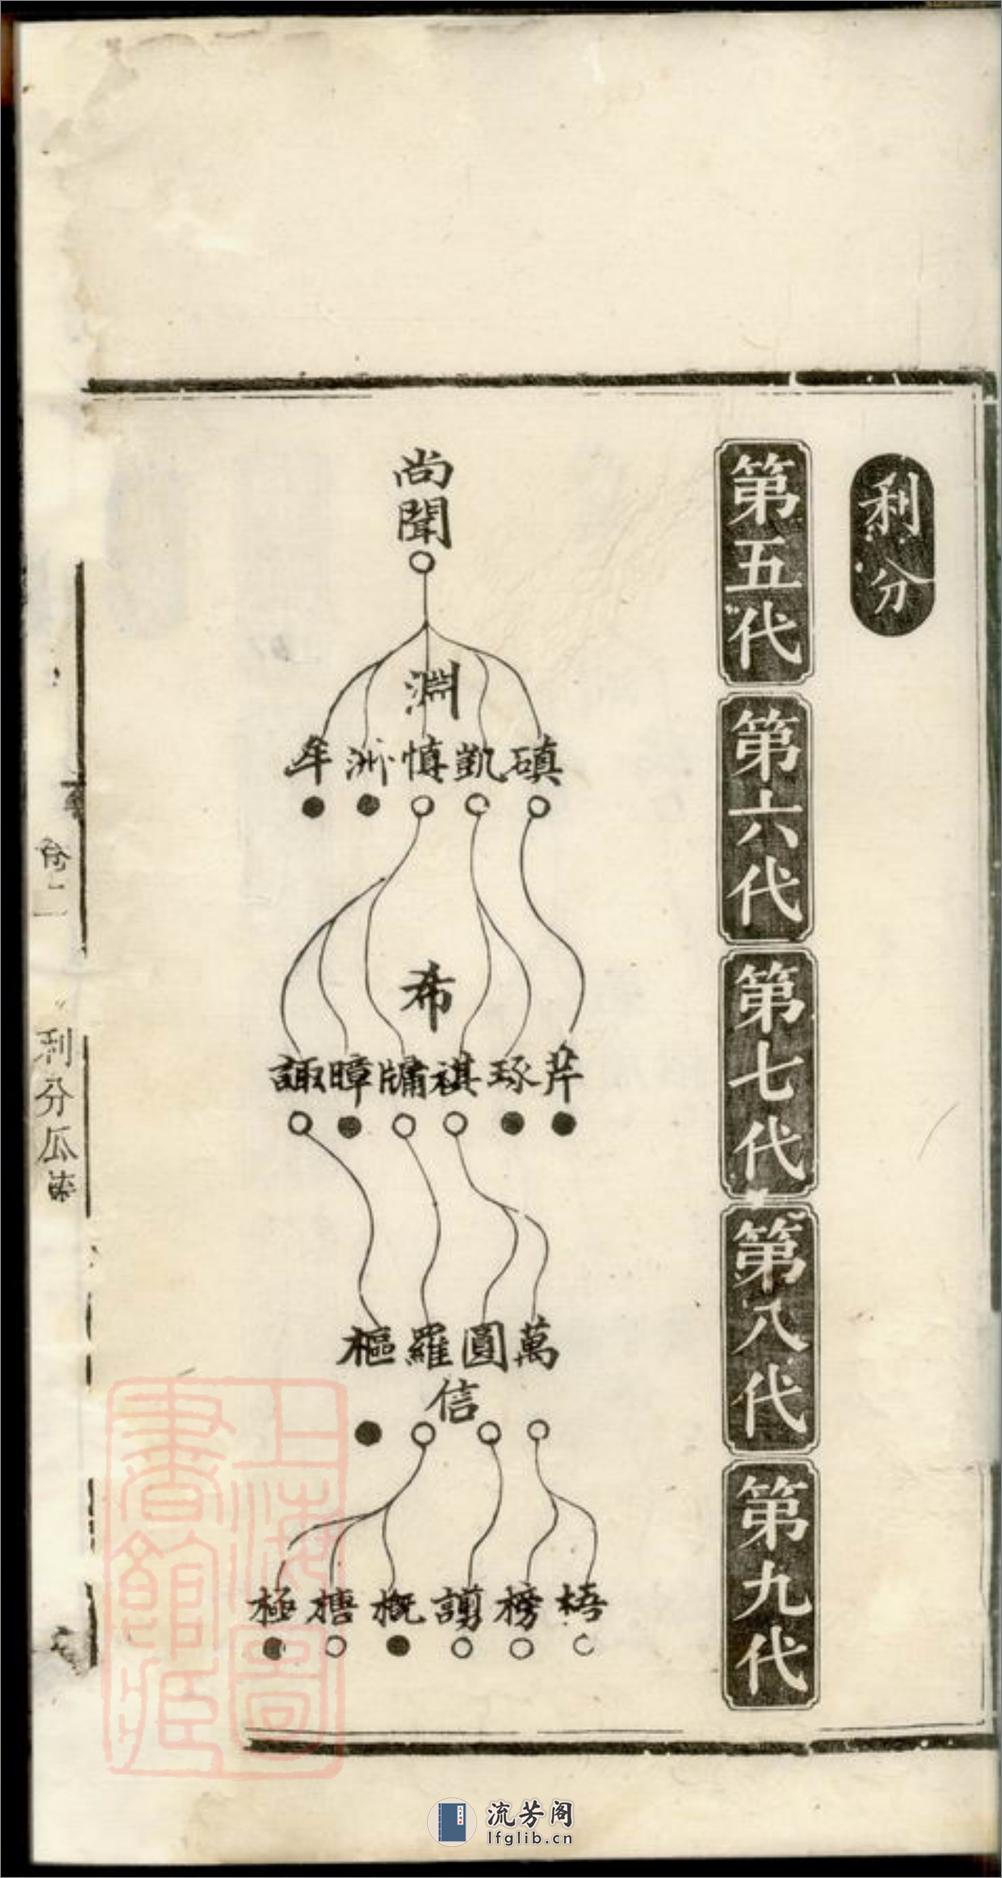 利分
第五代
第六代
第七代
第八代
第九代
尚聞
淵
磌凱慎洲牟
希
芹琢祺牗暲諏
萬圓羅樞
信
梧榜謭概榰極
卷二
利分瓜
上海圖書館藏
流芳阁
lfglib.cn